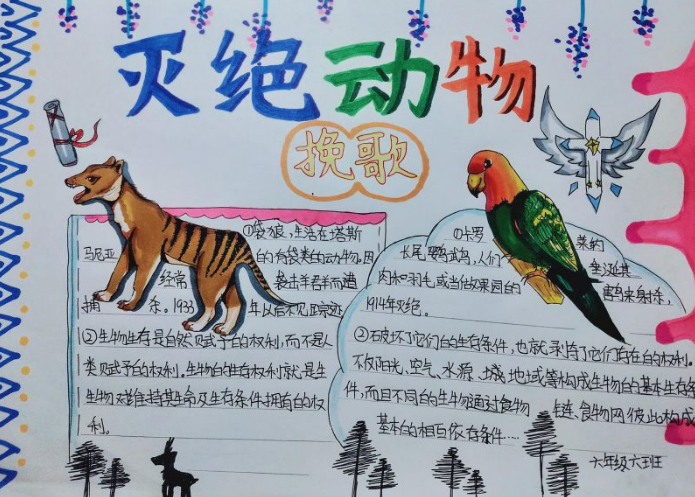 灭绝动物
挽歌
①袋狼,生活在塔斯
马尼亚 的有袋类的动物,因
经常 袭击羊群而遭
捕 杀。1933 年以后不见踪迹
②生物生存是自然赋予的权利,而不是人
类赋予的权利。生物的生存权利就是生
生物对维持其生命及生存条件拥有的权
利。
①卡罗 类的
长尾鹦鹉,人们 垂涎其
肉和羽毛或当做果园的 害鸟来射杀,
1914年灭绝。
②破坏了它们的生存条件,也就剥夺了它们存在的权利。
不仅阳光、空气、水源、 地域等构成生物的基本生存
件,而且不同的生物通过食物 链、食物网彼此构成
基本的相互依存条件....
六年级六班